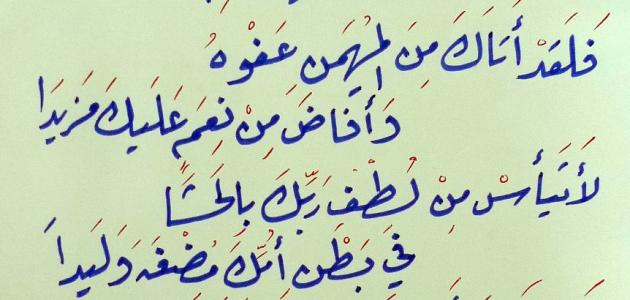 فَلَقَدْ أَتَاكَ مِنَ المُهَيمِنِ عَفْوُهُ
وَأَفَاضَ مِنْ نِعَمٍ عَلَيكَ مَزِيدَا
لَا تَيأَسْ مِنْ لُطْفِ رَبِّكَ بِالحَشَا
فِي بَطْنِ أُمِّكَ مُضْغَةً وَلَيدَاً